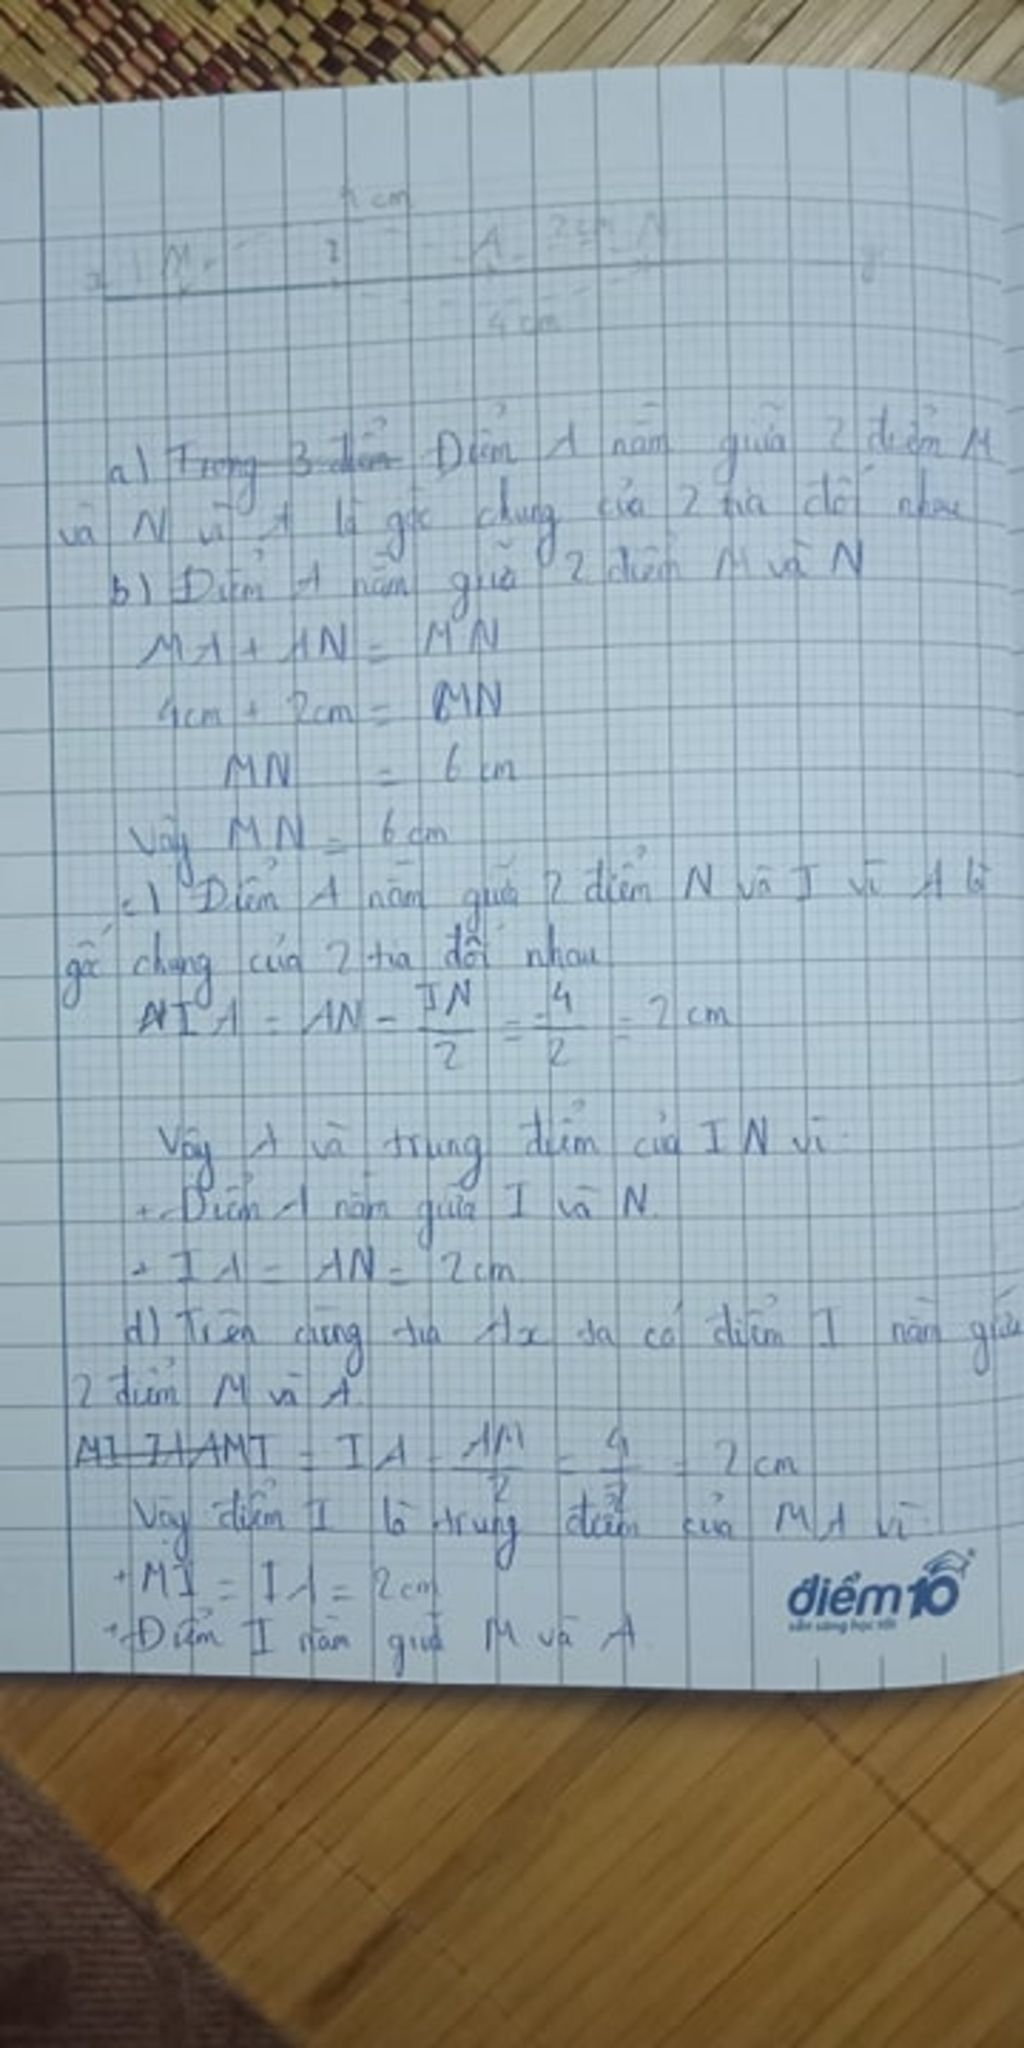 4 cm
x M I A 2cm N y
4 cm
a) Trong 3 điểm Điểm A nằm giữa 2 điểm M
và N vì A là gốc chung của 2 tia đối nhau
b) Điểm A nằm giữa 2 điểm M và N
MA + AN = MN
4cm + 2cm = MN
MN = 6 cm
Vậy MN = 6 cm
c) Điểm A nằm giữa 2 điểm N và I vì A là
gốc chung của 2 tia đối nhau
IA = AN = IN/2 = 4/2 = 2 cm
Vậy A và trung điểm của IN vì
+ Điểm A nằm giữa I và N.
+ IA = AN = 2cm
d) Trên cùng tia Ax ta có điểm I nằm giữa
2 điểm M và A.
MI = IA = AM/2 = 4/2 = 2 cm
Vậy điểm I là trung điểm của MA vì
+ MI = IA = 2 cm
+ Điểm I nằm giữa M và A
điểm 10
sẵn sàng học tốt